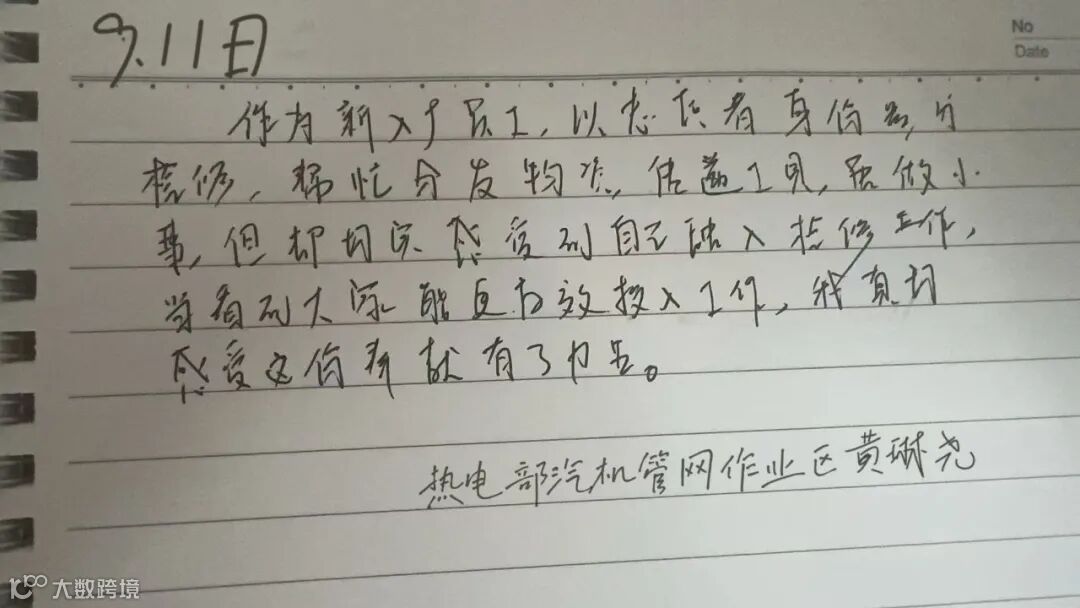 9.11日
No
Date
作为新入厂员工,以志愿者身份参与
检修,帮忙分发物资,传递工具,虽做小
事,但却切实感受到自己融入检修工作,
当看到大家能更高效投入工作,我真切
感受这份奉献有了力量。
热电部汽机管网作业区黄琳尧
大数跨境